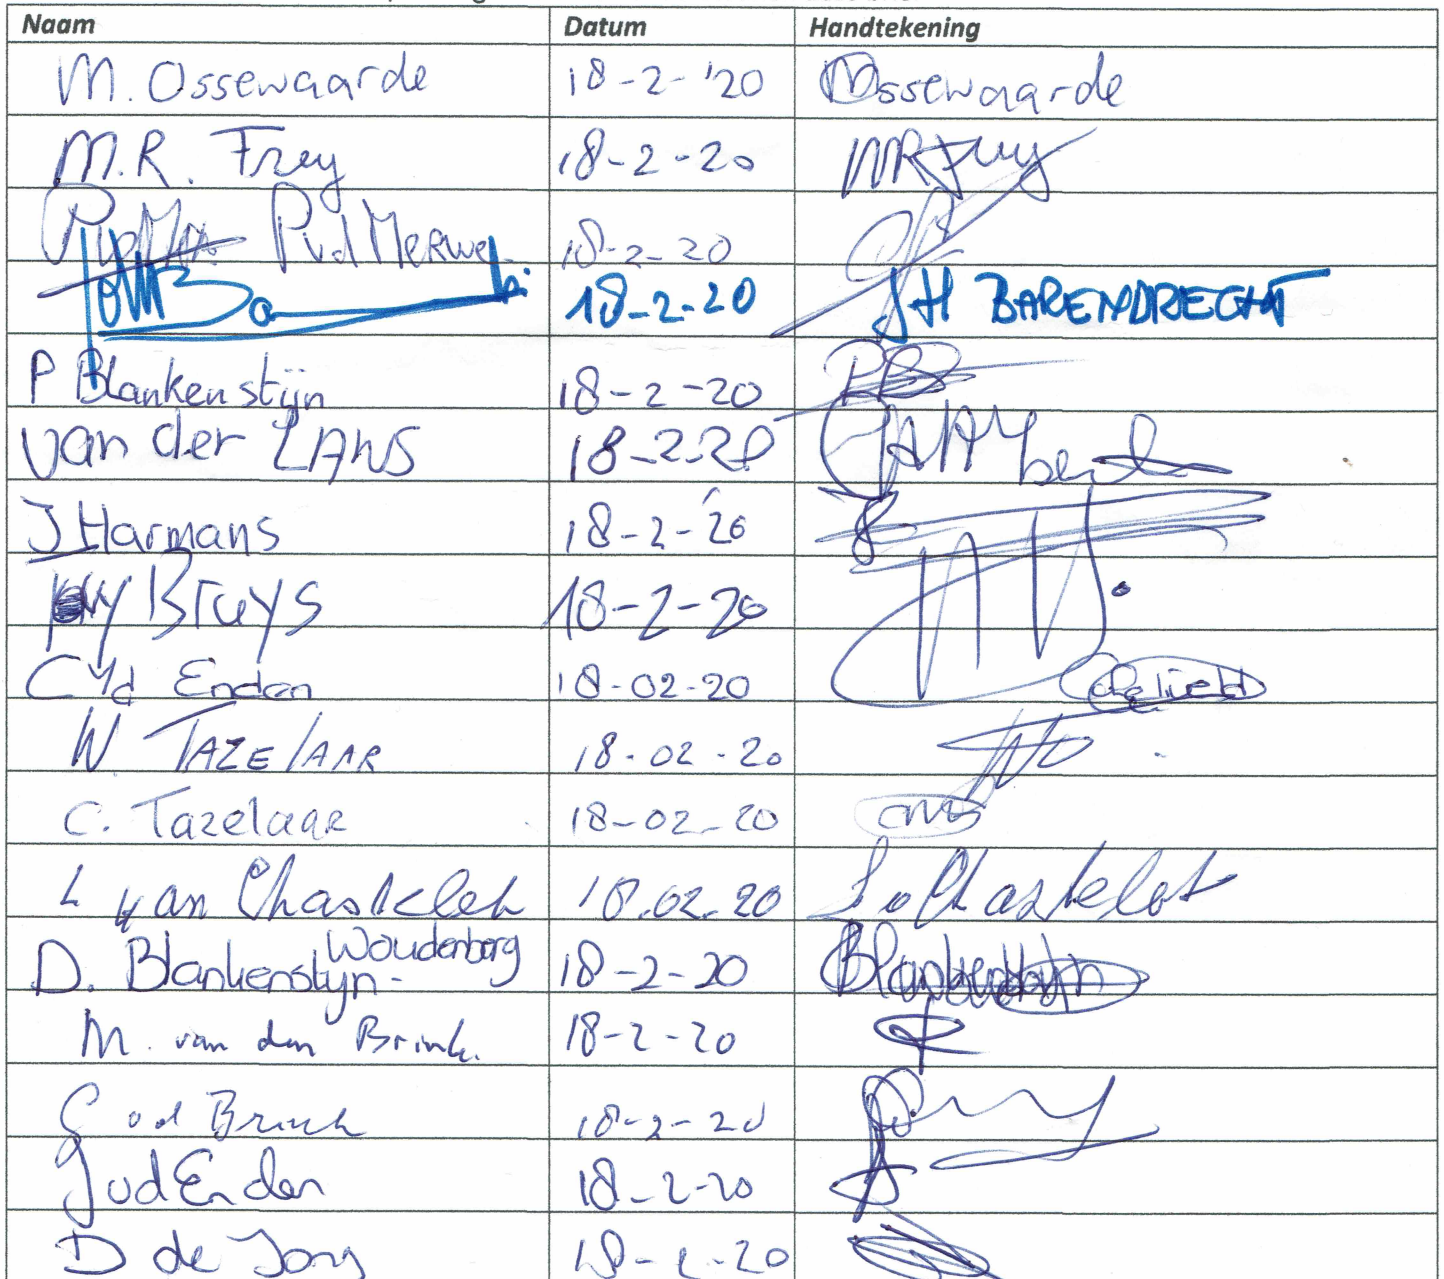 Naam Datum Handtekening
M. Ossewaarde 18-2-'20 MOssewaarde
M.R. Frey 18-2-20 MRFrey
PvdMerwe 18-2-20
18-2-20 JH BARENDRECHT
P Blankenstijn 18-2-20 PB
van der LAWS 18-2-20
J Harmans 18-2-'20
Bruys 18-2-20
C vd Enden 18-02-20
W. TAZELAAR 18-02-20
C. Tazelaar 18-02-20
L van Chastelet 18.02.20 L v Chastelet
D. Blankenstyn-Woudenberg 18-2-20 Blankenstyn
M. van den Brink. 18-2-20
G vd Brink 18-2-20
J vd Enden 18-2-20
D de Jong 18-2-20